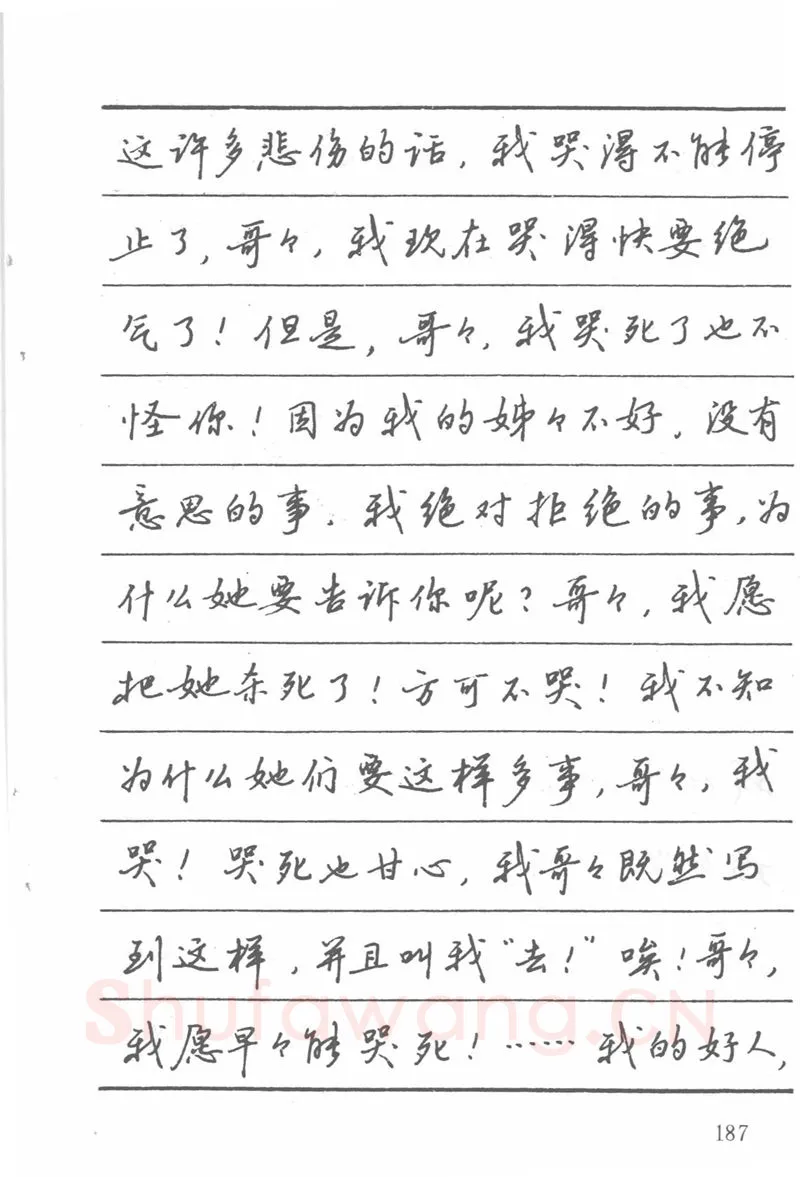 这许多悲伤的话，我哭得不能停
止了，哥々，我现在哭得快要绝
气了！但是，哥々，我哭死了也不
怪你！因为我的姊々不好，没有
意思的事，我绝对拒绝的事，为
什么她要告诉你呢？哥々，我愿
把她杀死了！方可不哭！我不知
为什么她们要这样多事，哥々，我
哭！哭死也甘心，我哥々既然写
到这样，并且叫我“去！”唉！哥々，
我愿早々能哭死！……我的好人，
Shufawang.CN
187